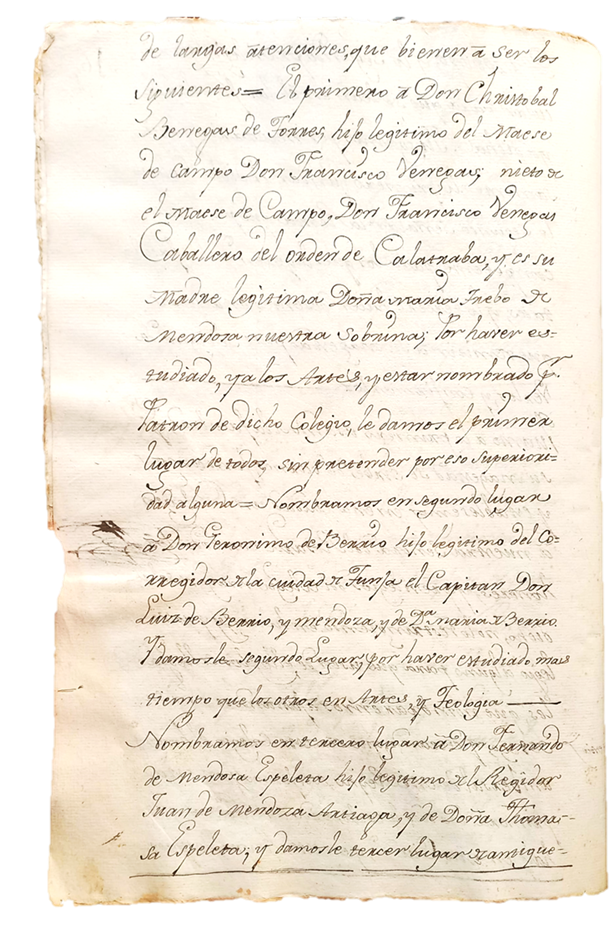 de largas atenciones, que bienen â ser los
siguientes = El primero â Don Christobal
Benegas de Torres, hijo legitimo del Maese
de campo Don Francisco Venegas; nieto de
el Maese de Campo, Don Francisco Venegas
Caballero del orden de Calatraba, y es su
Madre legitima Doña Maria Frebo de
Mendosa nuestra Sobrina; Por haver es-
tudiado, ya los Artes, y estar nombrado p.r
Patron de dicho Colegio, le damos el primer
lugar de todos, sin pretender por eso superiori-
dad alguna = Nombramos en segundo lugar
â Don Geronimo de Berrio hijo legitimo del Co-
rregidor de la ciudad de Tunja el Capitan Don
Luiz de Berrio, y mendoza, y de D.a Maria de Berrio.
Y damosle segundo Lugar, por haver estudiado mas
tiempo que los otros en Artes, y Teologia
Nombramos en tercero lugar â Don Fernando
de Mendosa Espeleta hijo legitimo del Regidor
Juan de Mendoza Artiaga, y de Doña Thoma-
sa Espeleta; y damosle tercer lugar